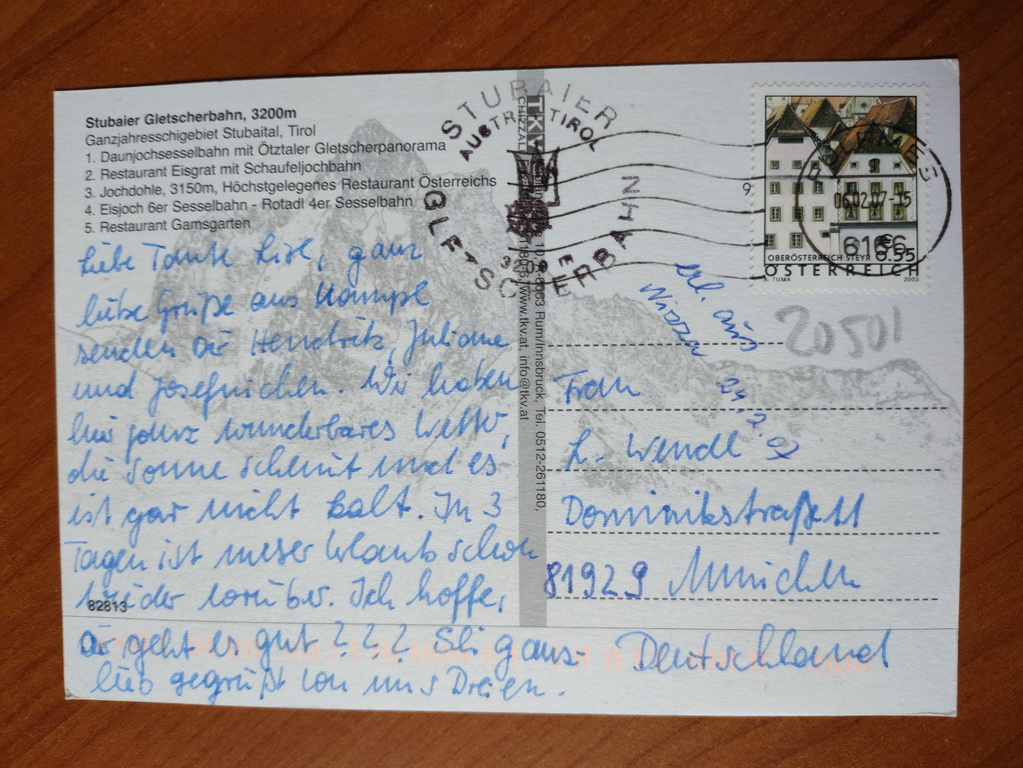 Stubaier Gletscherbahn, 3200m
Ganzjahresschigebiet Stubaital, Tirol
1. Daunjochsesselbahn mit Ötztaler Gletscherpanorama
2. Restaurant Eisgrat mit Schaufeljochbahn
3. Jochdohle, 3150m, Höchstgelegenes Restaurant Österreichs
4. Eisjoch 6er Sesselbahn - Rotadl 4er Sesselbahn
5. Restaurant Gamsgarten
Liebe Tante Lisl, ganz
liebe Grüße aus Kampl
senden Dir Hendrik, Juliane
und Josefinchen. Wir haben
hier ganz wunderbares Wetter,
die Sonne scheint und es
ist gar nicht kalt. In 3
Tagen ist unser Urlaub schon
wieder vorüber. Ich hoffe,
82813
Dir geht es gut ? ? ? Sei ganz
lieb gegrüßt von uns Dreien.
TKV
Rum/Innsbruck, Tel. 0512-261180,
www.tkv.at, info@tkv.at
STUBAIER
AUSTRIA TIROL
GLETSCHERBAHN
9
06.02.07-15
6166
0.55
OBERÖSTERREICH STEYR
ÖSTERREICH
A. TUMA
2003
erl. aus
Nizza
24.2.07
20501
Frau
L. Wendl
Dominikstraße 11
81929 München
Deutschland